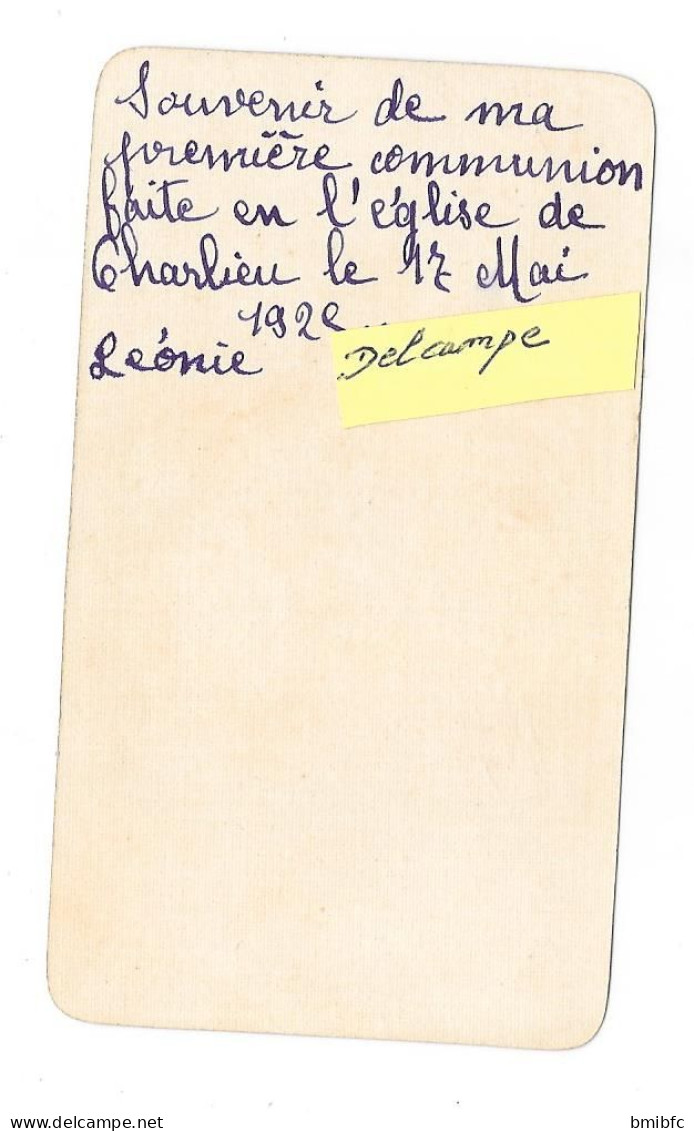 Souvenir de ma
première communion
faite en l'église de
Charlieu le 17 Mai
1920
Léonie
Delcampe
bmibfc